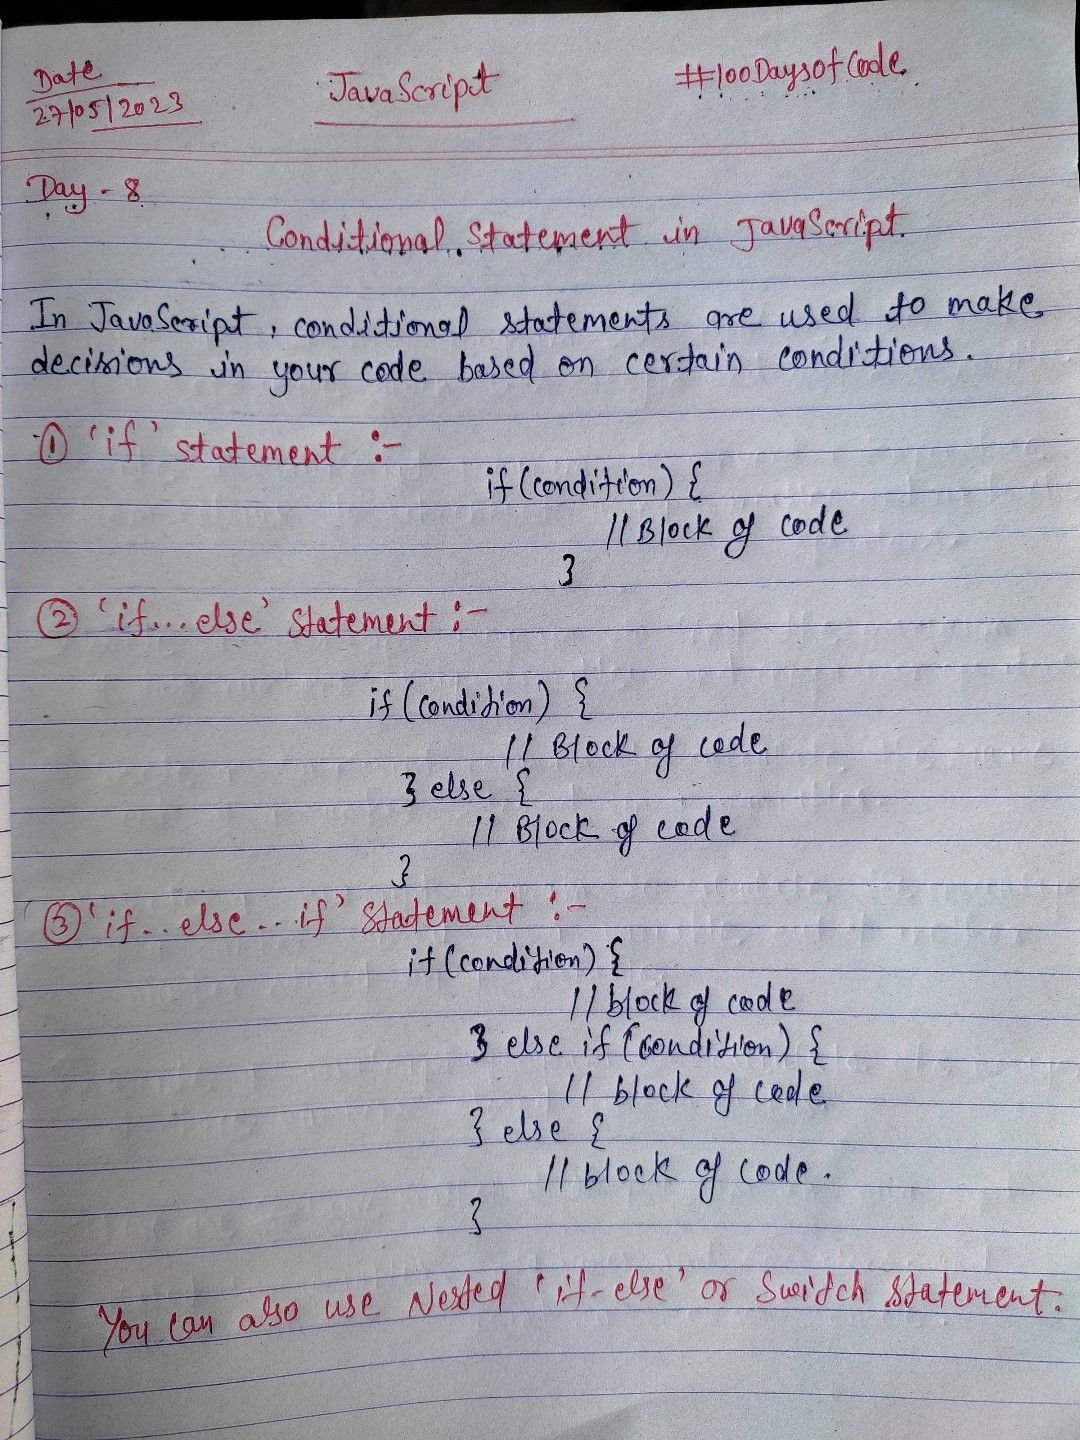 Date
27/05/2023
JavaScript
#100DaysofCode
Day - 8
Conditional Statement in JavaScript.
In JavaScript, conditional statements are used to make
decisions in your code based on certain conditions.
① 'if' statement :-
if (condition) {
// Block of code
}
② 'if...else' statement :-
if (condition) {
// Block of code
} else {
// Block of code
}
③ 'if..else...if' statement :-
if (condition) {
// block of code
} else if (condition) {
// block of code
} else {
// block of code.
}
You can also use Nested 'if-else' or Switch statement.